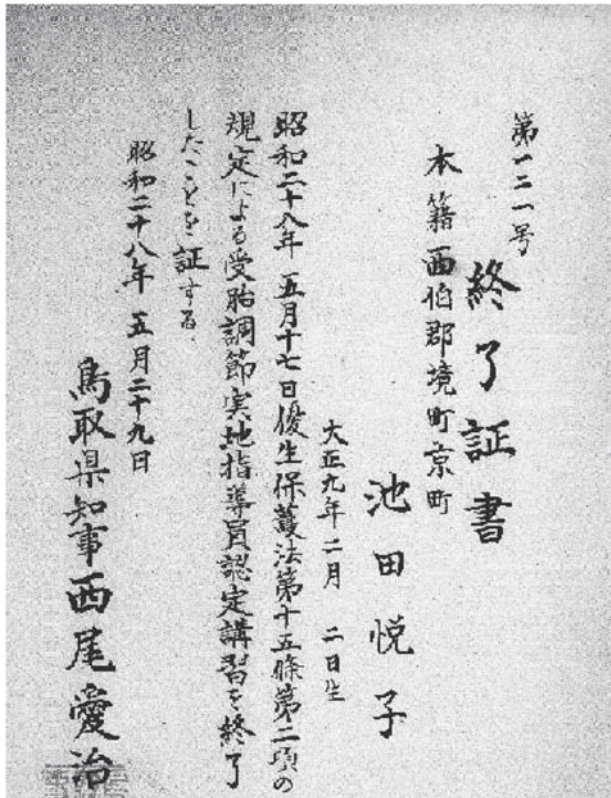 第一二一号
終了証書
本籍西伯郡境町京町
池田悦子
大正九年二月　二日生
昭和二十八年五月十七日優生保護法第十五條第二項の
規定による受胎調節実地指導員認定講習を終了
したことを証する
昭和二十八年五月二十九日
鳥取県知事西尾愛治